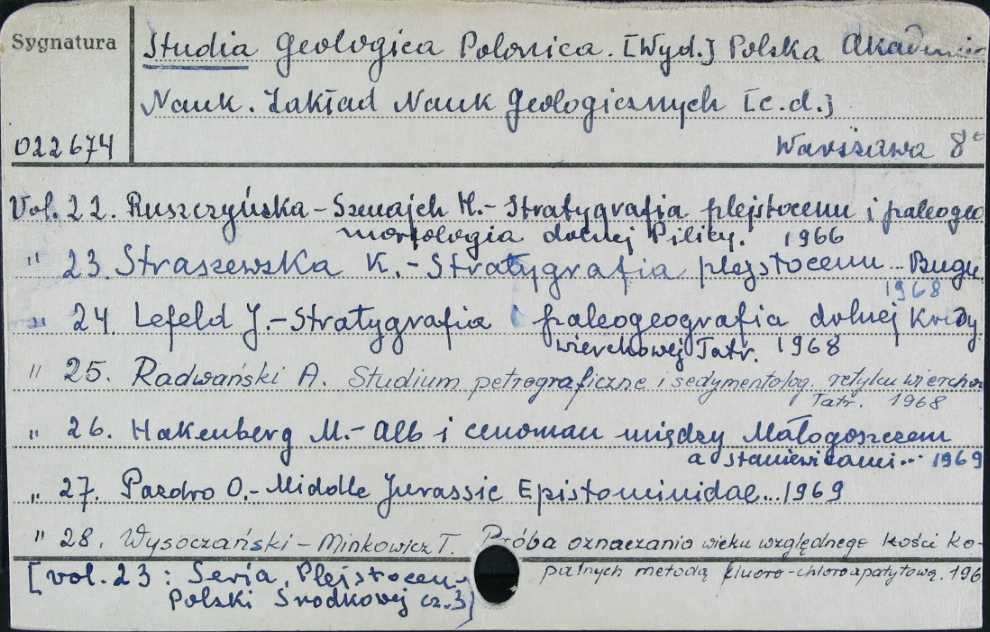 Sygnatura
Studia Geologica Polonica. [Wyd.] Polska Akademia
Nauk. Zakład Nauk Geologicznych [c.d.]
022674
Warszawa 8°
Vol. 22. Ruszczyńska-Szenajch H.- Stratygrafia plejstocenu i paleogeo
morfologia dolnej Pilicy. 1966
" 23. Straszewska K.- Stratygrafia plejstocenu ... Bugu
1968
" 24. Lefeld J.- Stratygrafia i paleogeografia dolnej kredy
wierchowej Tatr. 1968
" 25. Radwański A. Studium petrograficzne i sedymentolog. retyku wierchow
Tatr. 1968
" 26. Hakenberg M.- Alb i cenoman między Małogoszczem
a Staniewicami... 1969
" 27. Pazdro O.- Middle Jurassic Epistominidae... 1969
" 28. Wysoczański-Minkowicz T. Próba oznaczania wieku względnego kości ko-
palnych metodą fluoro-chloroapatytową. 196
[vol. 23 : Serja, Plejstocen
Polski Środkowej cz. 3]